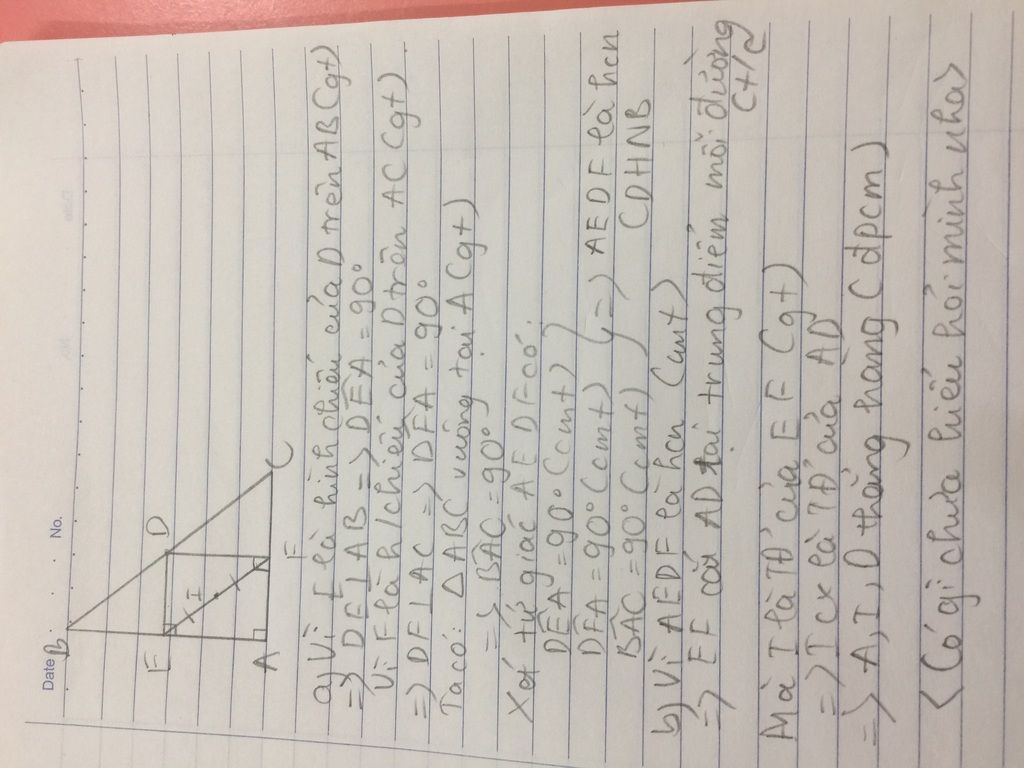 Date No.
B
E D
I
A F C
a) Vì E là hình chiếu của D trên AB (gt)
=> DE ⊥ AB => DÊA = 90°
Vì F là h/chiếu của D trên AC (gt)
=> DF ⊥ AC => DF̂A = 90°
Ta có: △ABC vuông tại A (gt)
=> BÂC = 90°
Xét tứ giác AEDF có:
DÊA = 90° (cmt)
DF̂A = 90° (cmt) } => AEDF là hcn
BÂC = 90° (cmt) (DHNB
b) Vì AEDF là hcn (cmt)
=> EF cắt AD tại trung điểm mỗi đường
(t/c
Mà I là TĐ của EF (gt)
=> I cx là TĐ của AD
=> A, I, D thẳng hàng (đpcm)
<Có gì chưa hiểu hỏi mình nha>